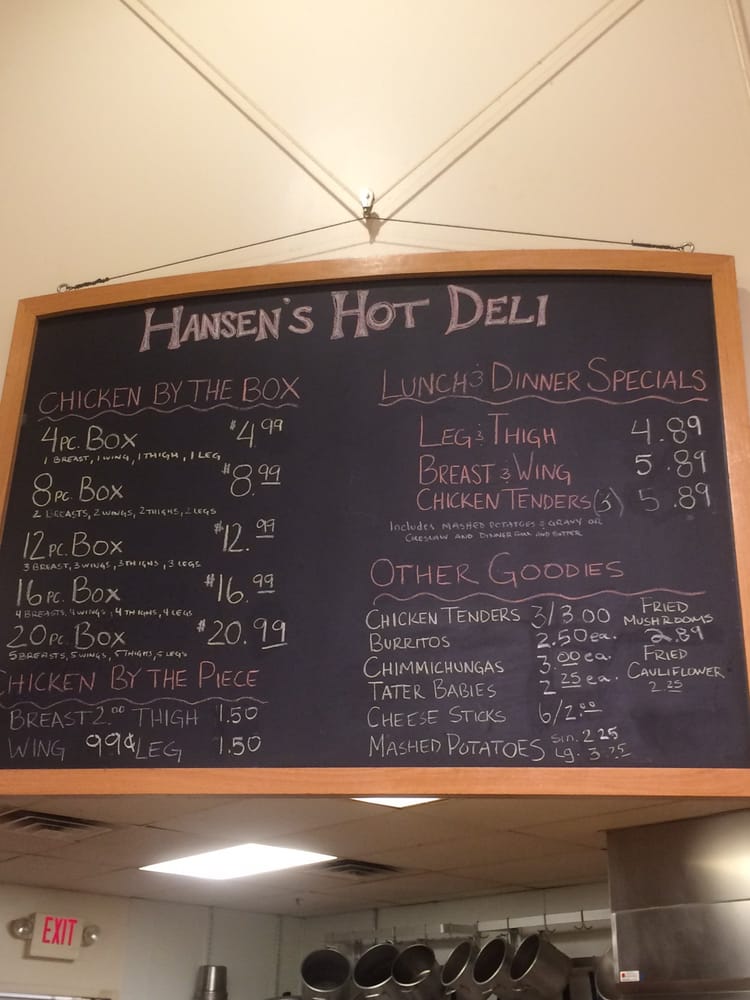 HANSEN'S HOT DELI
CHICKEN BY THE BOX
4PC. BOX $4.99
1 BREAST, 1 WING, 1 THIGH, 1 LEG
8PC. BOX $8.99
2 BREASTS, 2 WINGS, 2 THIGHS, 2 LEGS
12PC. BOX $12.99
3 BREAST, 3 WINGS, 3 THIGHS, 3 LEGS
16PC. BOX $16.99
4 BREASTS, 4 WINGS, 4 THIGHS, 4 LEGS
20PC. BOX $20.99
5 BREASTS, 5 WINGS, 5 THIGHS, 5 LEGS
CHICKEN BY THE PIECE
BREAST 2.00 THIGH 1.50
WING 99¢ LEG 1.50
LUNCH & DINNER SPECIALS
LEG & THIGH 4.89
BREAST & WING 5.89
CHICKEN TENDERS (3) 5.89
INCLUDES MASHED POTATOES & GRAVY OR
AND DINNER ROLL AND BUTTER
OTHER GOODIES
CHICKEN TENDERS 3/3.00
BURRITOS 2.50 ea.
CHIMMICHUNGAS 3.00 ea.
TATER BABIES 2.25 ea.
CHEESE STICKS 6/2.00
MASHED POTATOES sm. 2.25
lg. 3.25
FRIED
MUSHROOMS
2.89
FRIED
CAULIFLOWER
2.25
EXIT